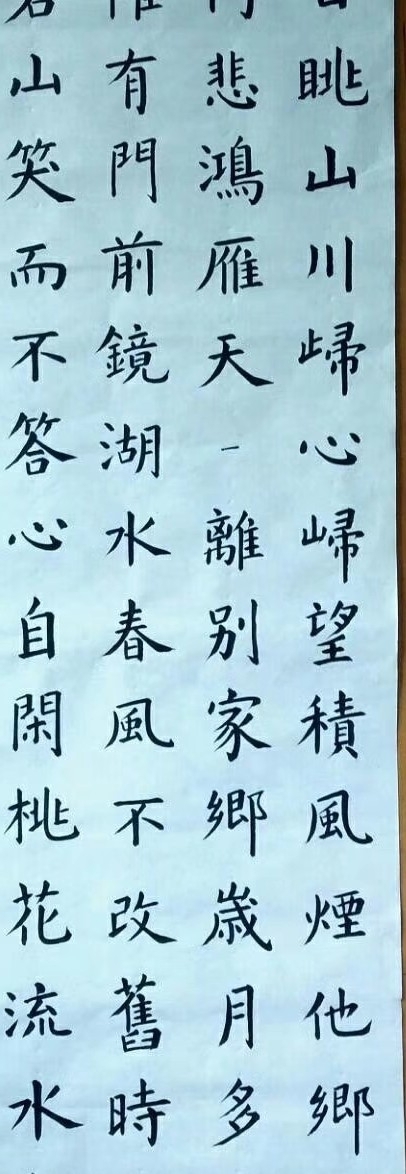 眺山川㱕心㱕望積風煙他鄉
悲鴻雁天一離別家鄉歳月多
有門前鏡湖水春風不改舊時
山笑而不答心自閑桃花流水